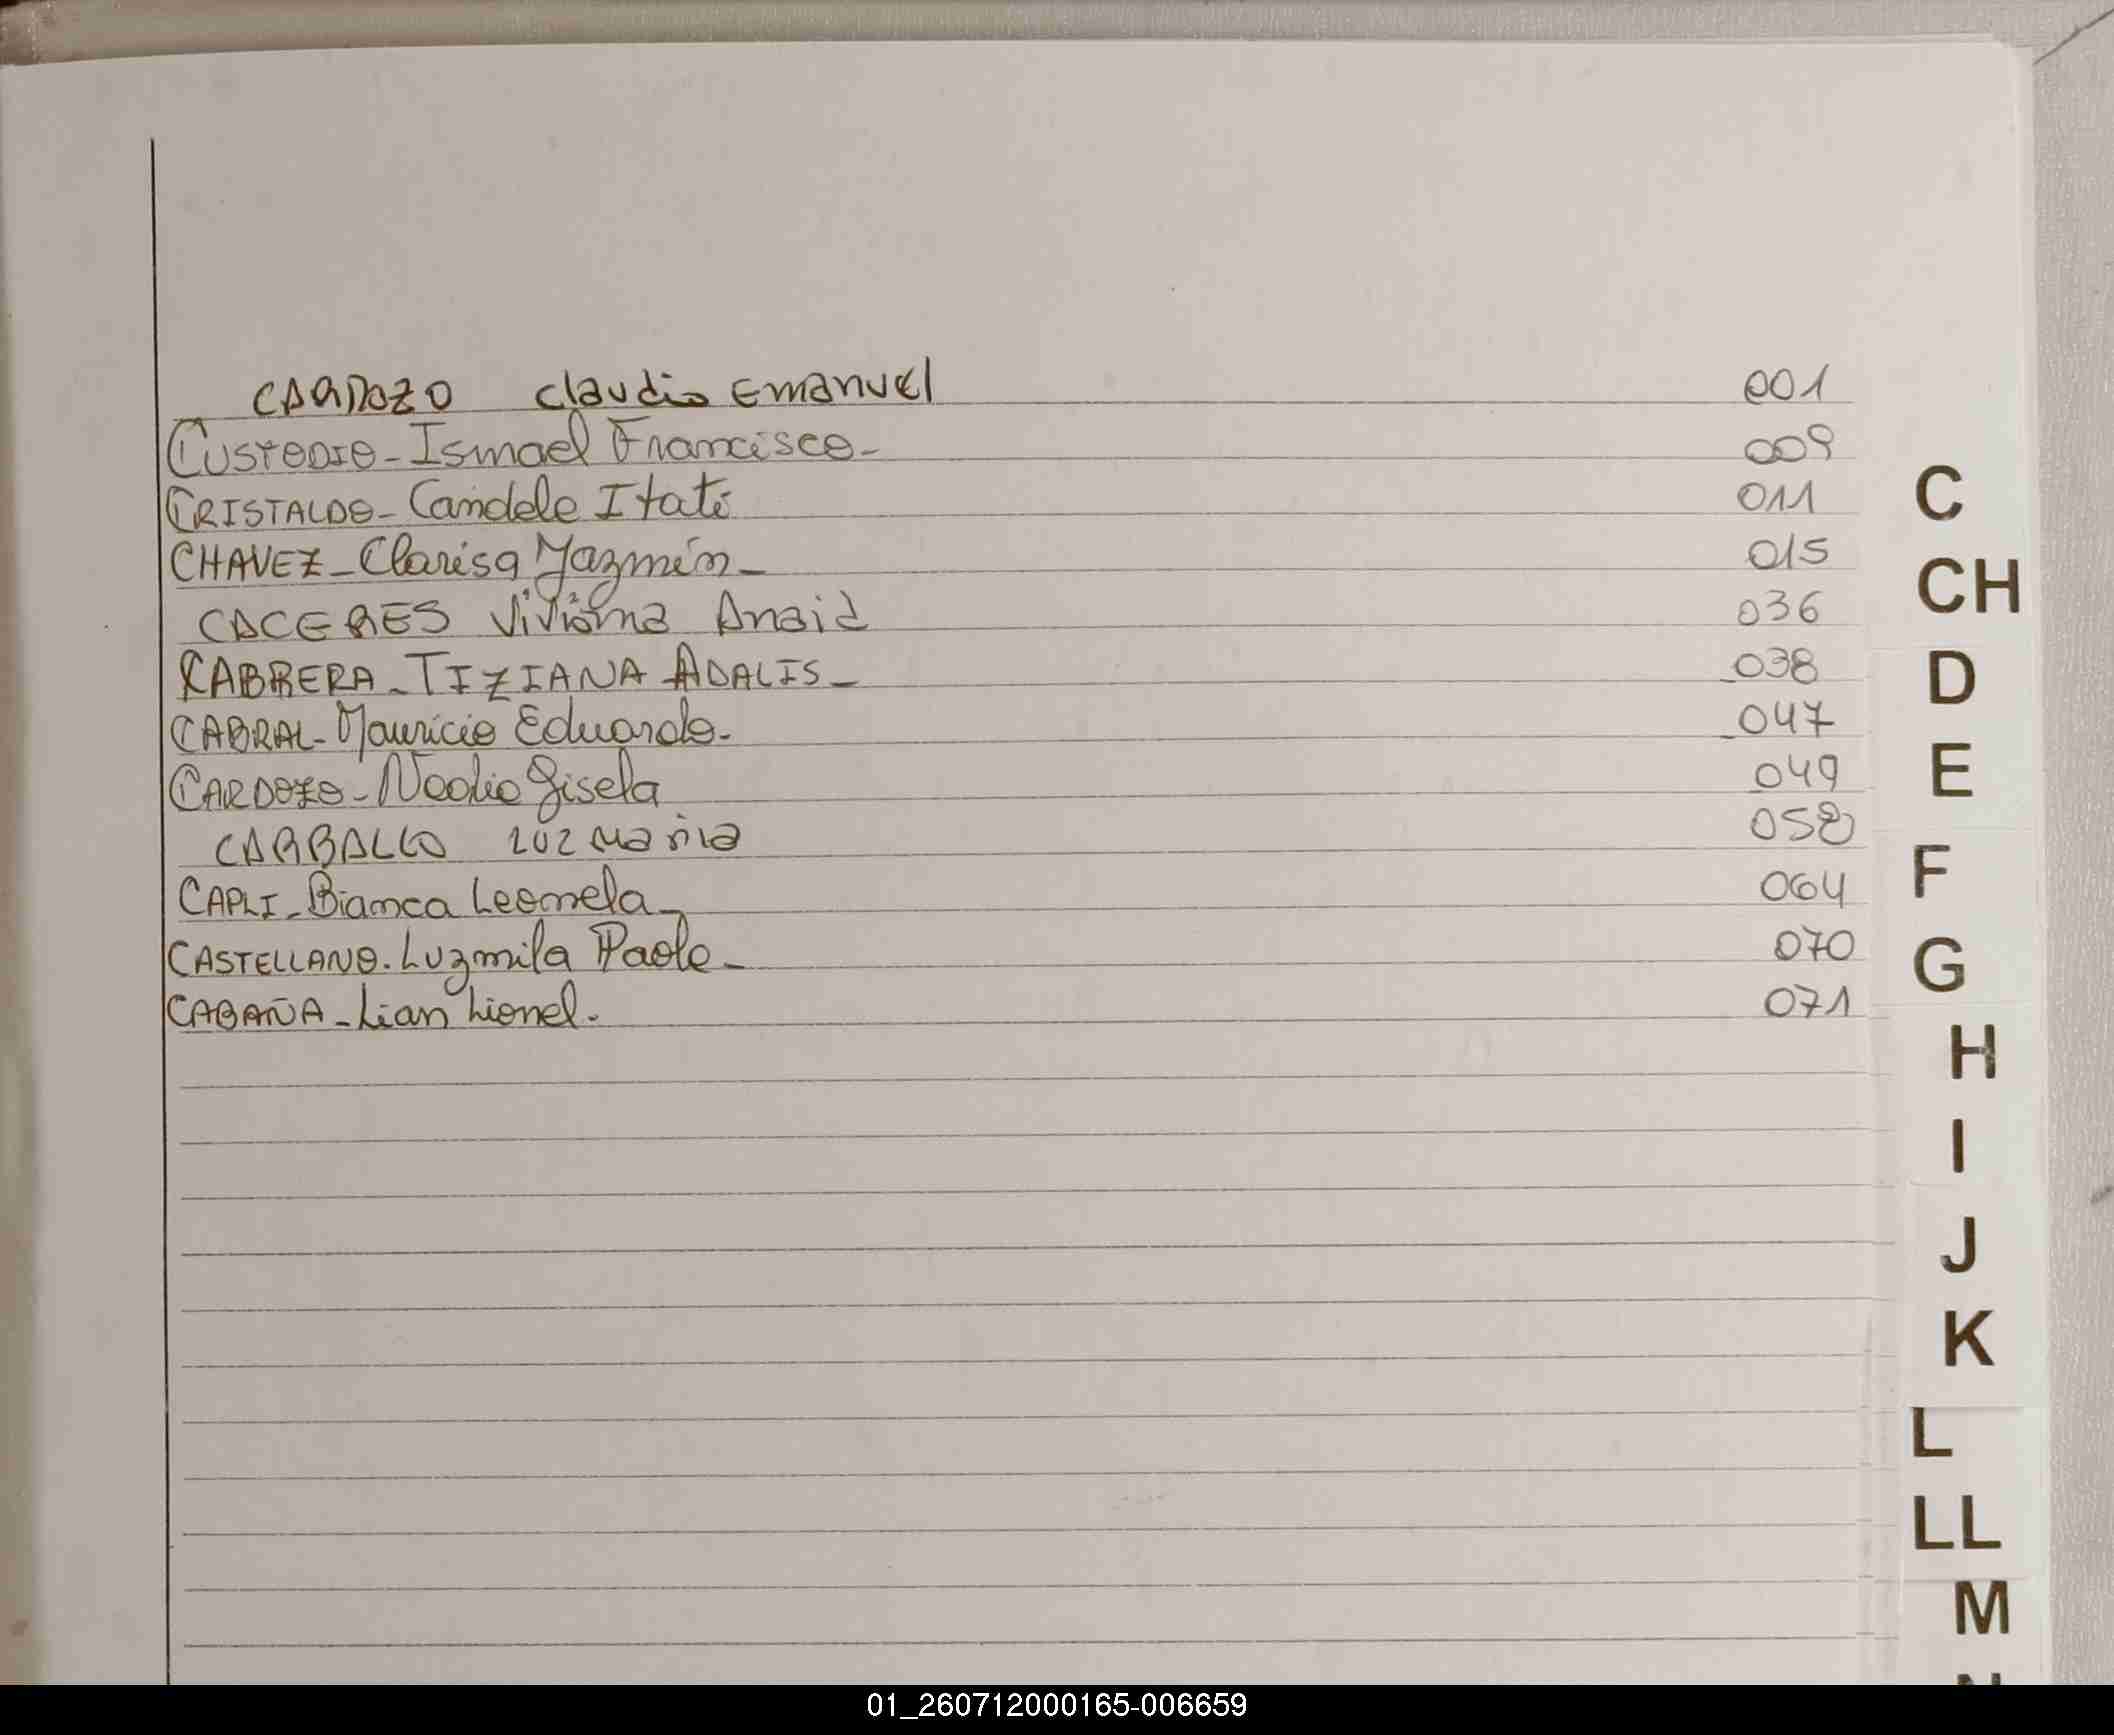 CARDOZO Claudio Emanuel 001
CUSTODIO - Ismael Francisco - 009
CRISTALDO - Candela Itatí 011
CHAVEZ - Clarisa Yazmín - 015
CACERES Viviana Anaid 036
CABRERA - TIZIANA ADALIS - 038
CABRAL - Mauricio Eduardo - 047
CARDOZO - Noelia Gisela 049
CARBALLO Luz Maria 058
CAPLI - Bianca Leonela - 064
CASTELLANO. Luzmila Paola - 070
CABAÑA - Lian Lionel. 071
C
CH
D
E
F
G
H
I
J
K
L
LL
M
01_260712000165-006659